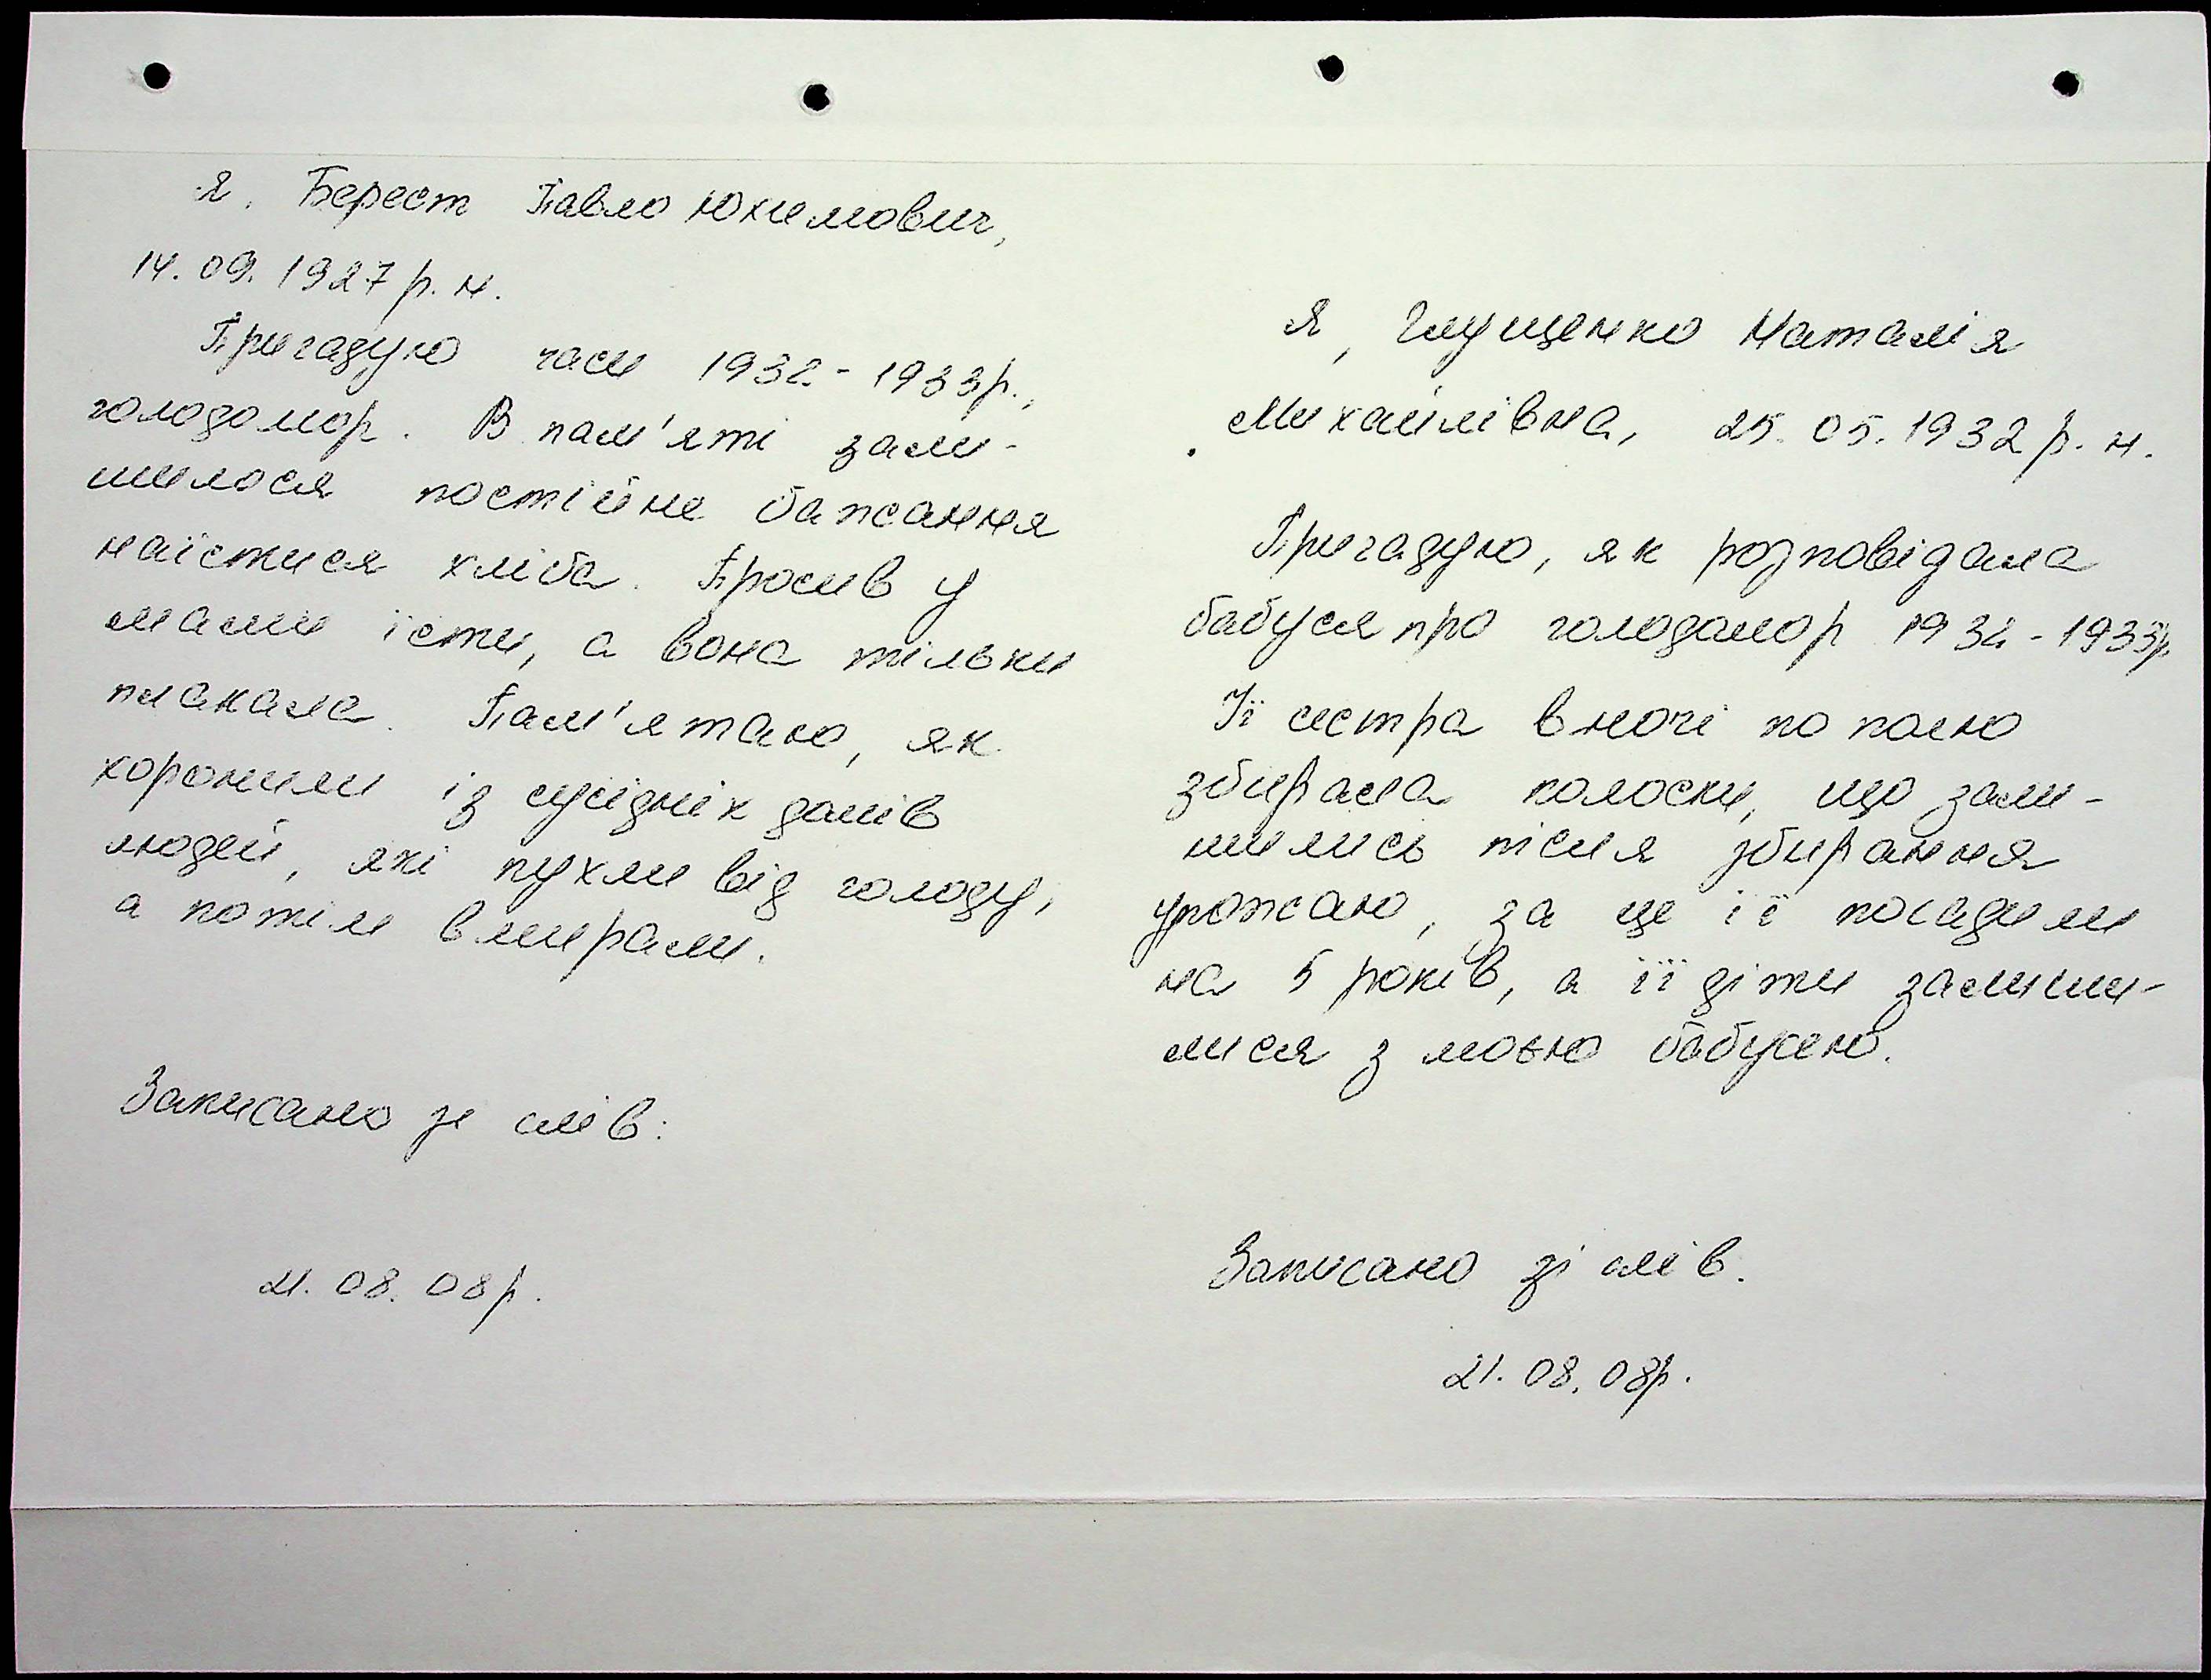 Я, Берест Павло Юхимович,
14.09.1927 р.н.
Пригадую часи 1932-1933р.,
голодомор. В пам'яті зали-
шилося постійне бажання
наїстися хліба. Просив у
мами їсти, а вона тільки
плакала. Пам'ятаю, як
хоронили із сусідніх домів
людей, які пухли від голоду,
а потім вмирали.
Записано зі слів:
21.08.08р.
Я, Глущенко Наталія
Михайлівна, 25.05.1932 р.н.
Пригадую, як розповідала
бабуся про голодомор 1932-1933р.
Її сестра вночі по полю
збирала колоски, що зали-
шились після збирання
урожаю, за це її посадили
на 5 років, а її діти залиши-
лися з моєю бабусею.
Записано зі слів.
21.08.08р.